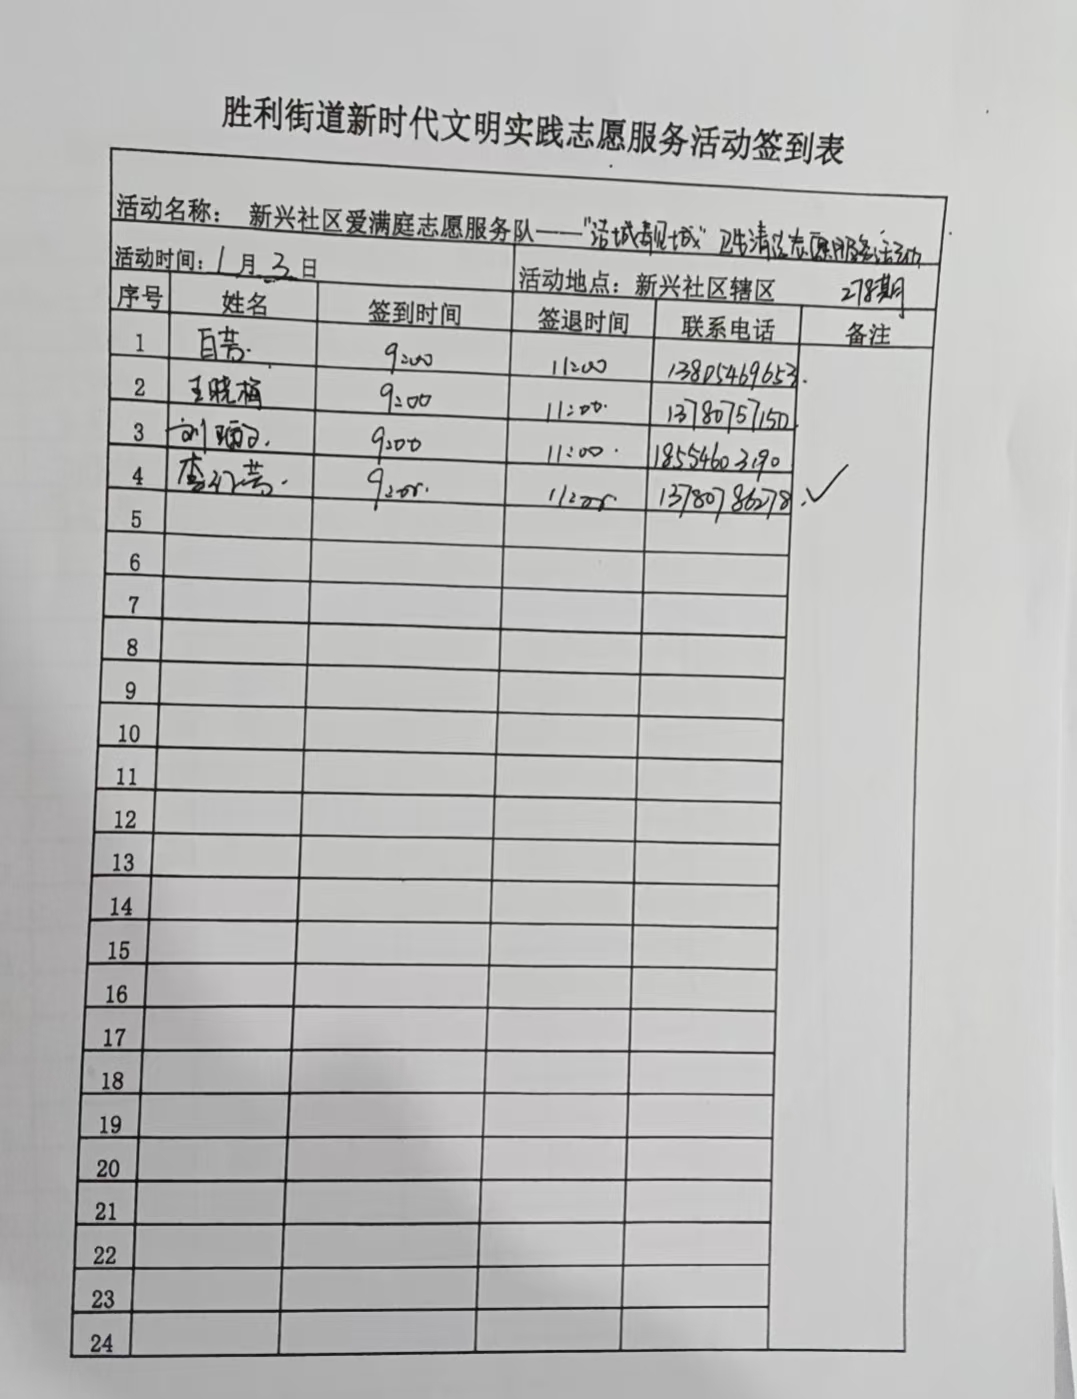 胜利街道新时代文明实践志愿服务活动签到表
活动名称： 新兴社区爱满庭志愿服务队——“洁城靓城”卫生清洁志愿服务活动
278期
活动时间：1月3日 活动地点：新兴社区辖区
序号 姓名 签到时间 签退时间 联系电话 备注
1 白芸 9:00 11:00 13805469653
2 王晓梅 9:00 11:00 13780757150
3 刘 9:00 11:00 18554603190
4 李红芸 9:00 11:00 13780786278 ✓
5
6
7
8
9
10
11
12
13
14
15
16
17
18
19
20
21
22
23
24